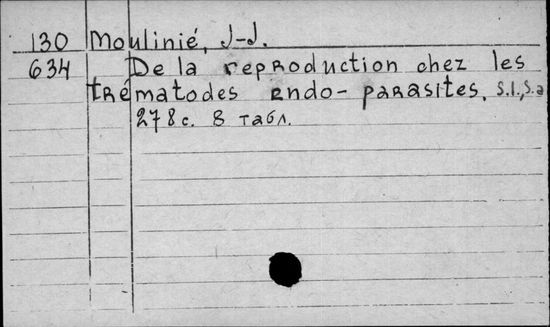 130 Moulinié, J-J.
634 De la reproduction chez les
trématodes endo-parasites. S.l., S.a
278 с. 8 табл.